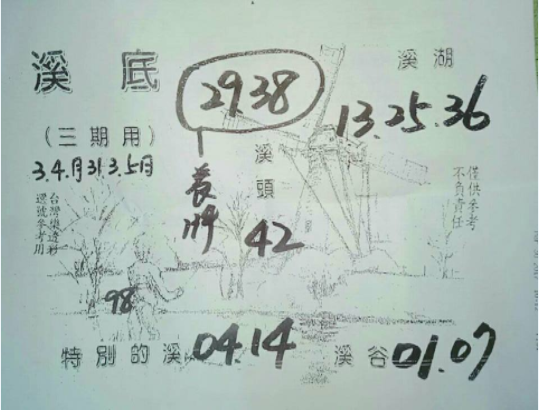 溪底
29.38
溪湖
13.25.36
(三期用)
3.4.月31.3.5月
溪頭
42
僅供參考
不負責任
台灣樂透彩
選號參考用
98
特別的溪04.14
溪谷01.07